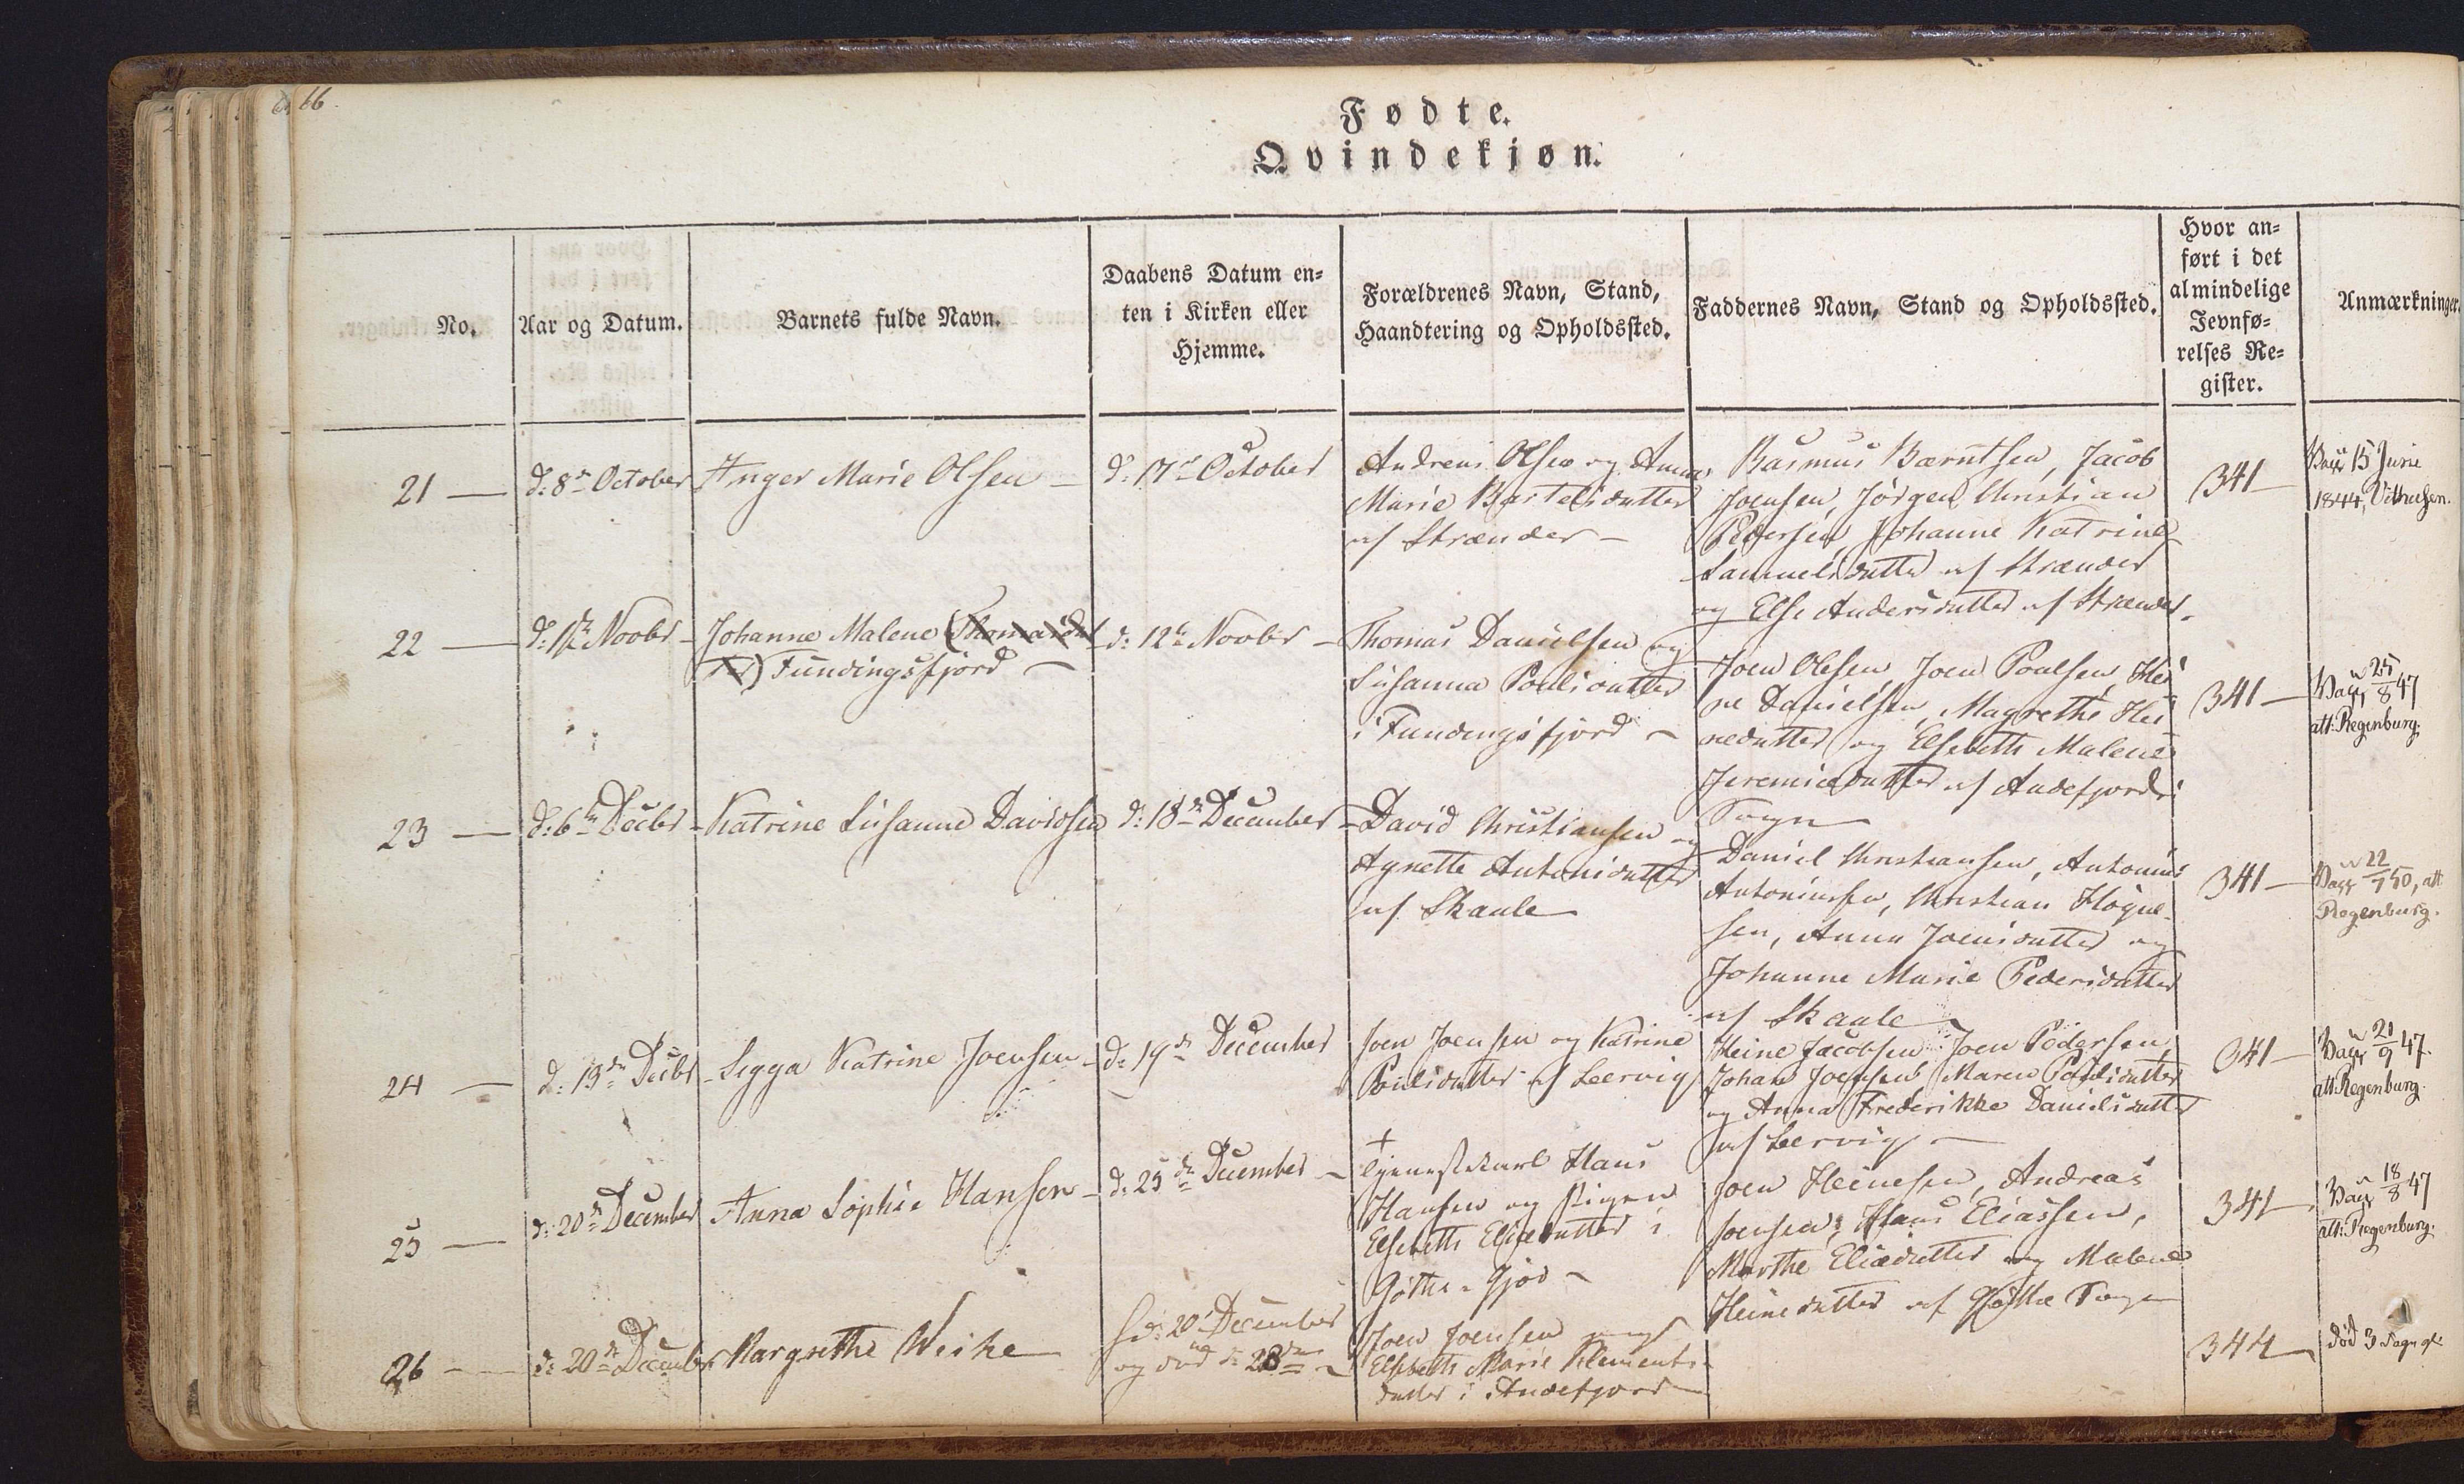 66
Fødte.
Qvindekjøn.
No.
Aar og Datum.
Barnets fulde Navn.
Daabens Datum en=
ten i Kirken eller
Hjemme.
Forældrenes Navn, Stand,
Haandtering og Opholdssted.
Faddernes Navn, Stand og Opholdssted.
Hvor an=
ført i det
almindelige
Jevnfø=
relses Re=
gister.
Anmærkninger.
21 —
d: 8de October
Inger Marie Olsen —
d: 17de October
Andreas Olsen og Anna
Marie Bartelsdatter
af Strænder —
Rasmus Berntsen, Jacob
Joensen, Jørgen Christian
Pedersen, Johanne Katrine
Samuelsdatter af Strænder
og Else Andersdatter af Strænder.
341 —
Vacc 15 Junii
1844,
22 —
d: 1ste Novbr —
Johanne Malene (Thomasdat
ter) Fundingsfjord —
d: 12te Novbr —
Thomas Danielsen og
Susanna Poulsdatter
i Fundingsfjord —
Joen Olesen, Joen Poulsen, Hei
ne Danielsen, Magrethe Hei
nedatter og Elsebeth Malene
Jeremiasdatter af Andefjords
Sogn
341 —
Vacc 25/8 47
att: Regenburg.
23 —
d: 6te Decbr —
Katrine Susanne Davidsen
d: 18de December —
David Christiansen og
Agnette Antonisdatter
af Skaale —
Daniel Christiansen, Antonius
Antoniussen, Christian Høgne-
sen, Anna Joensdatter og
Johanne Marie Pedersdatter
af Skaale
341 —
Vacc 22/7 50, att
Regenburg.
24 —
d: 13de Decbr —
Sigga Katrine Joensen —
d: 19de December
Joen Joensen og Katrine
Poulsdatter af Leervig
Heine Jacobsen, Joen Pedersen,
Johan Joensen, Maren Poulsdatter
og Anna Frederikke Danielsdatter
af Leervig —
341 —
Vacc 21/9 47.
att: Regenburg.
25 —
d: 20de December
Anna Sophie Hansen —
d: 25de December —
+
Tjenestekarl Hans
Hansen og Pigen
Elsebeth Eliedatter i
Gøthe-Gjov —
Joen Heinesen, Andreas
Joensen, Hans Eliassen,
Marthe Eliedatter og Malene
Heinedatter af Gøthe Sogn
341 —
Vacc 18/8 47
att: Regenburg.
26 —
d: 20de December
Margrethe Weihe
d: 20 December
og død d: 23de —
Joen Joensen og
Elsebeth Marie Klements-
datter i Andefjord —
344
død 3 Dage gl: